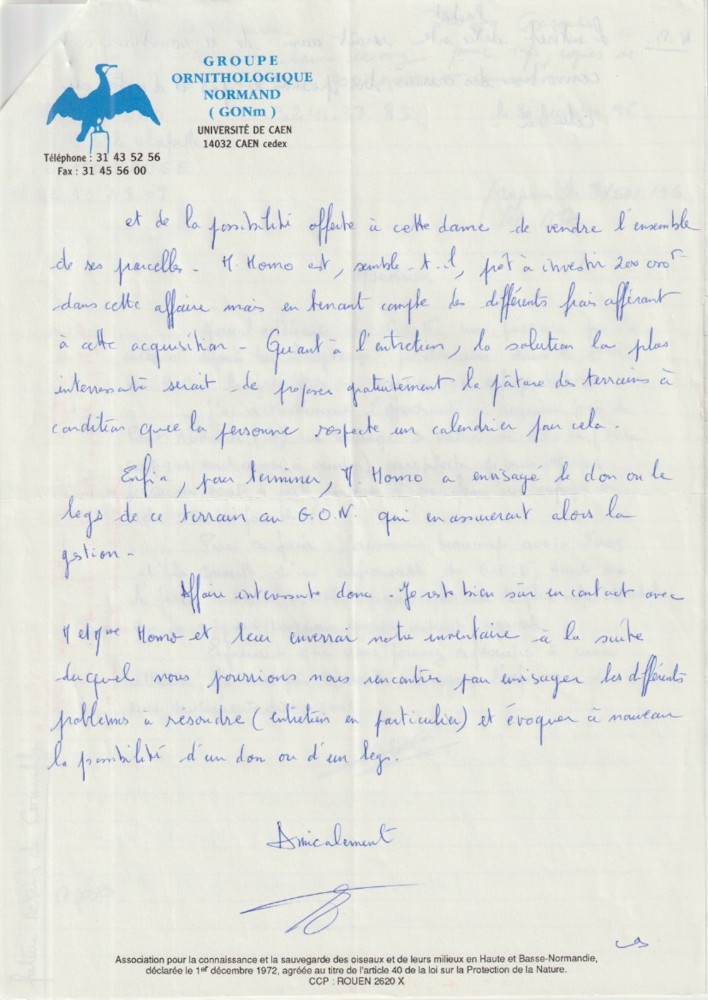 GROUPE
ORNITHOLOGIQUE
NORMAND
( GONm )
UNIVERSITÉ DE CAEN
14032 CAEN cedex
Téléphone : 31 43 52 56
Fax : 31 45 56 00
et de la possibilité offerte à cette dame de vendre l'ensemble
de ses parcelles - M. Homo est, semble-t-il, prêt à investir 200 000F
dans cette affaire mais en tenant compte des différents frais afférant
à cette acquisition - Quant à l'entretien, la solution la plus
interessante serait de proposer gratuitement la pâture des terrains à
condition que la personne respecte un calendrier pour cela.
Enfin, pour terminer, M. Homo a envisagé le don ou le
legs de ce terrain au G.O.N. qui en assurerait alors la
gestion -
Affaire interessante donc - Je reste bien sûr en contact avec
M et Mme Homo et leur enverrai notre inventaire à la suite
duquel nous pourrions nous rencontrer pour envisager les différents
problèmes à resoudre (entretien en particulier) et évoquer à nouveau
la possibilité d'un don ou d'un legs.
Amicalement
Association pour la connaissance et la sauvegarde des oiseaux et de leurs milieux en Haute et Basse-Normandie,
déclarée le 1er décembre 1972, agréée au titre de l'article 40 de la loi sur la Protection de la Nature.
CCP : ROUEN 2620 X